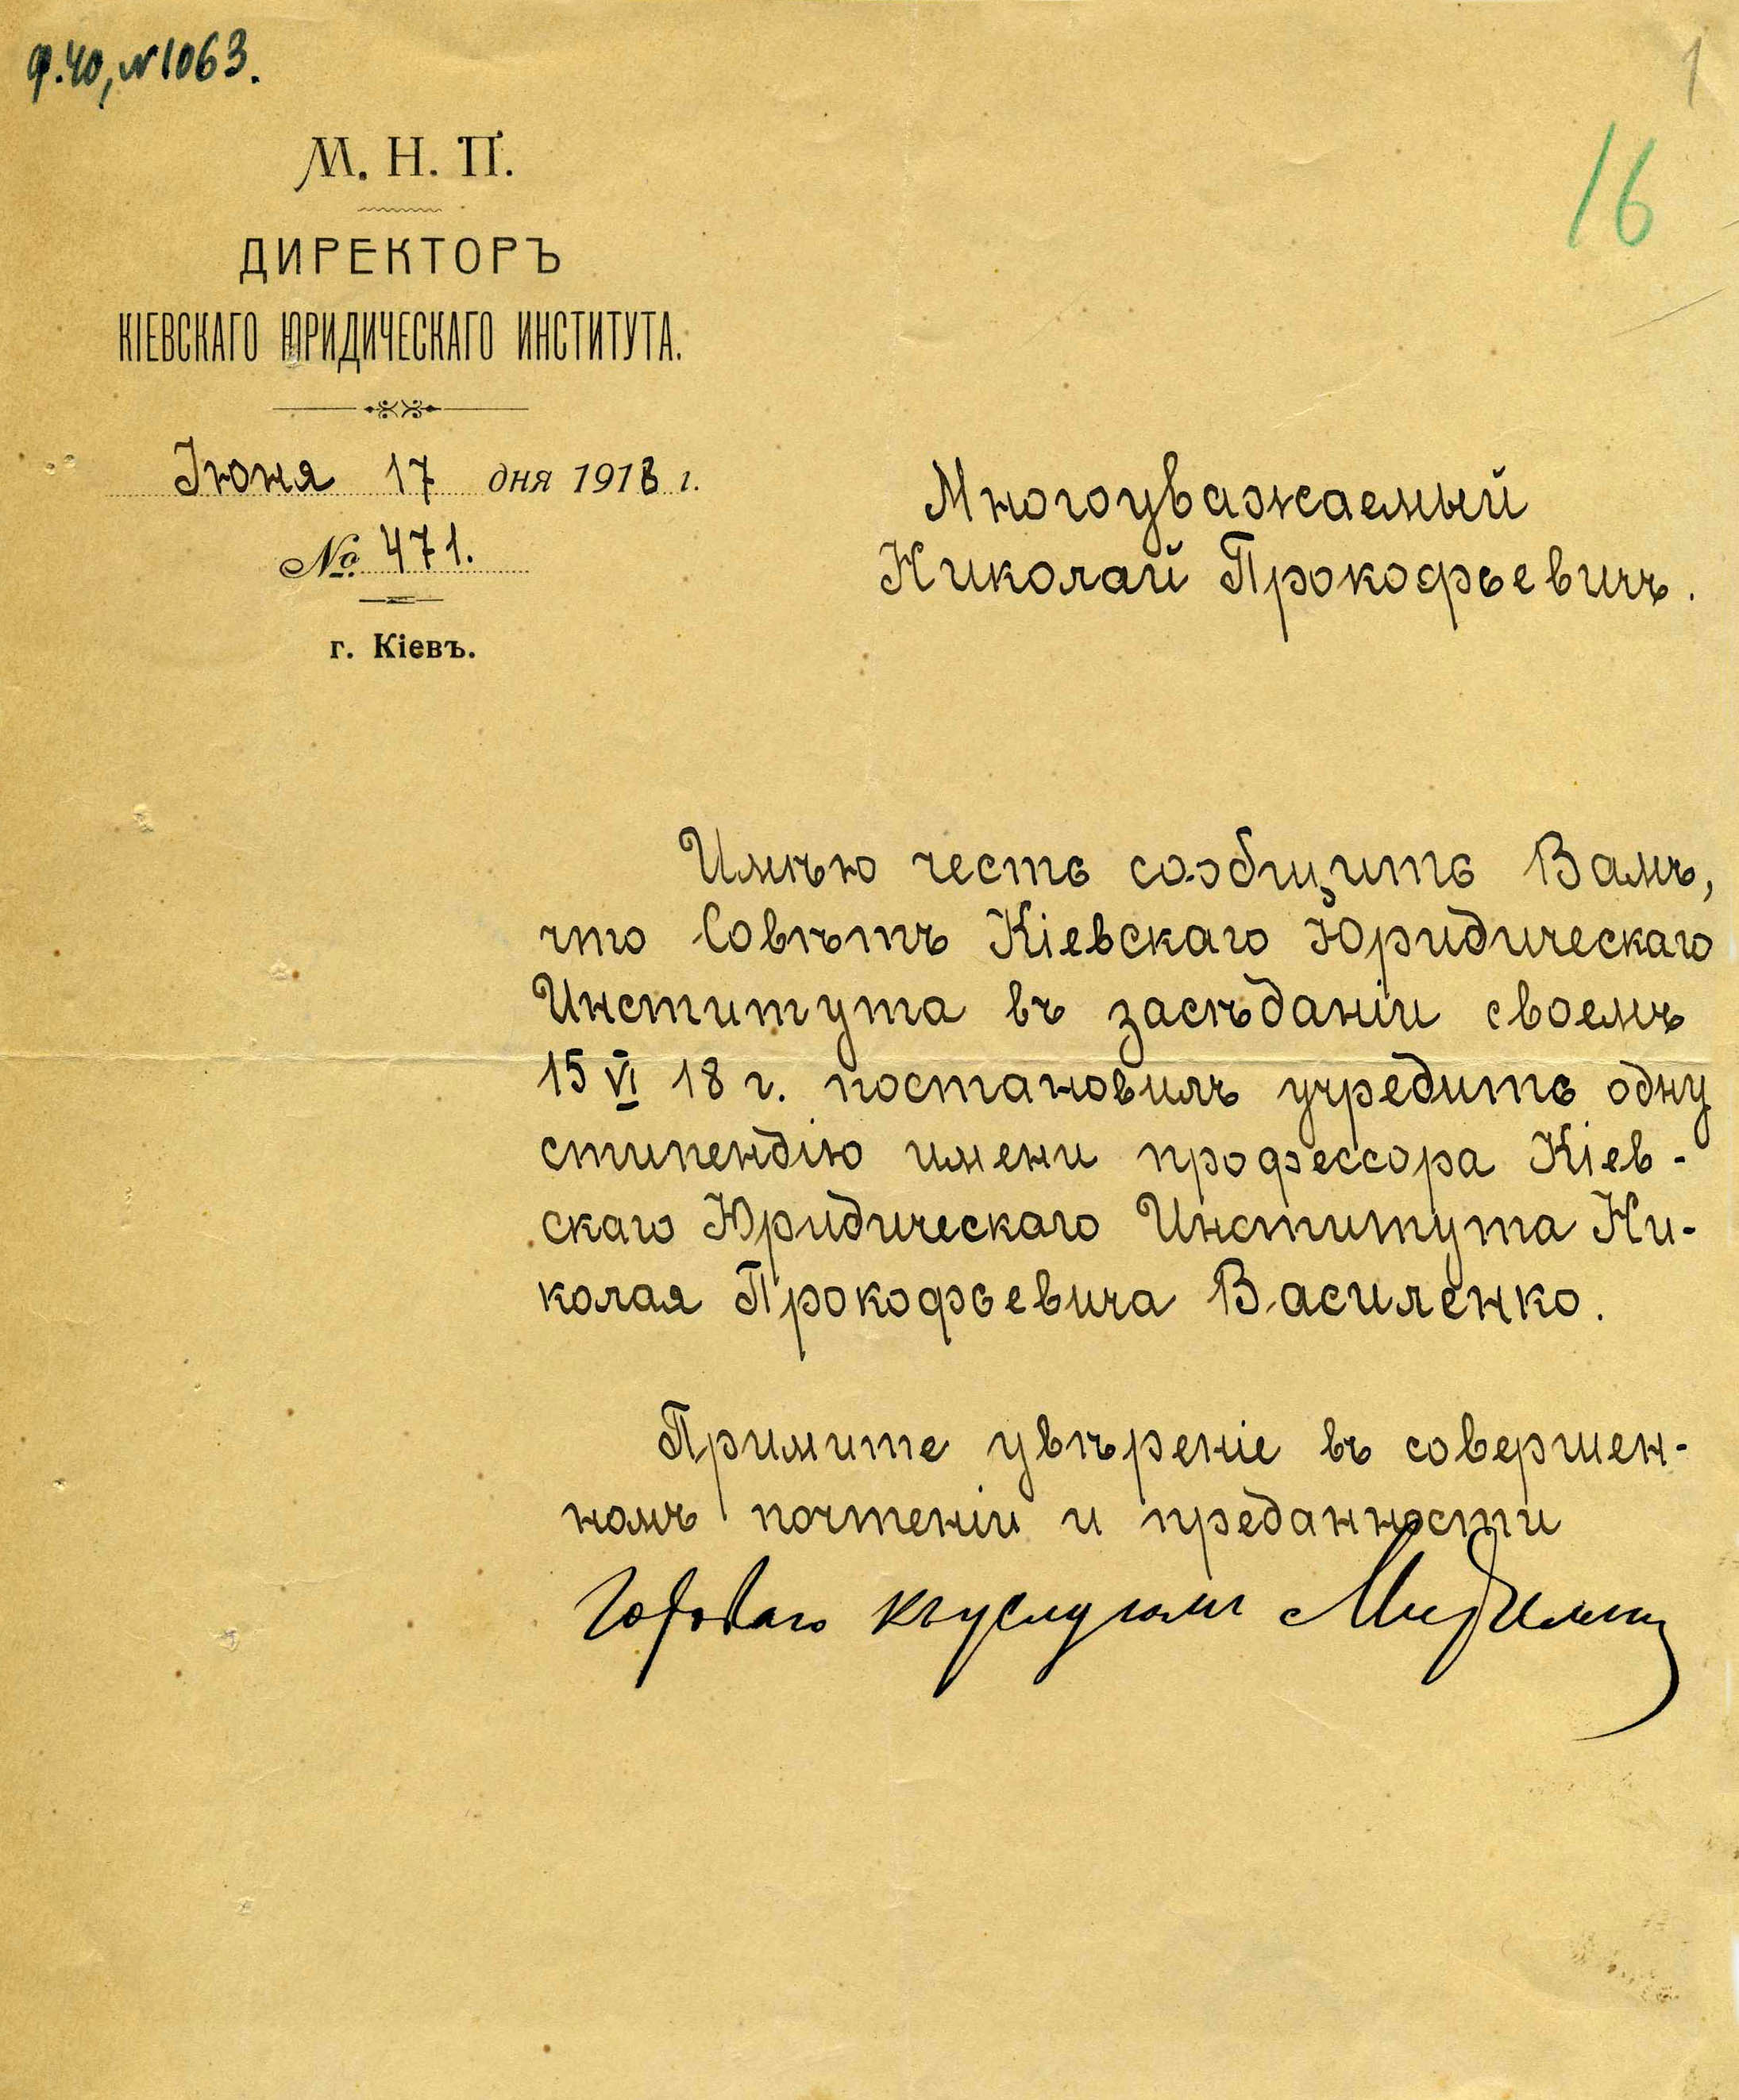 ф. 40, № 1063.
1
16
М. Н. П.
ДИРЕКТОРЪ
КІЕВСКАГО ЮРИДИЧЕСКАГО ИНСТИТУТА.
Іюня 17 дня 1918 г.
№ 471.
г. Кіевъ.
Многоуважаемый
Николай Прокофьевичъ.
Имѣю честь сообщить Вамъ,
что Совѣтъ Кіевскаго Юридическаго
Института въ засѣданіи своемъ
15 VI 18 г. постановилъ учредить одну
стипендію имени профессора Кіев-
скаго Юридическаго Института Ни-
колая Прокофьевича Василенко.
Примите увѣреніе въ совершен-
номъ почтеніи и преданности
готоваго къ услугамъ